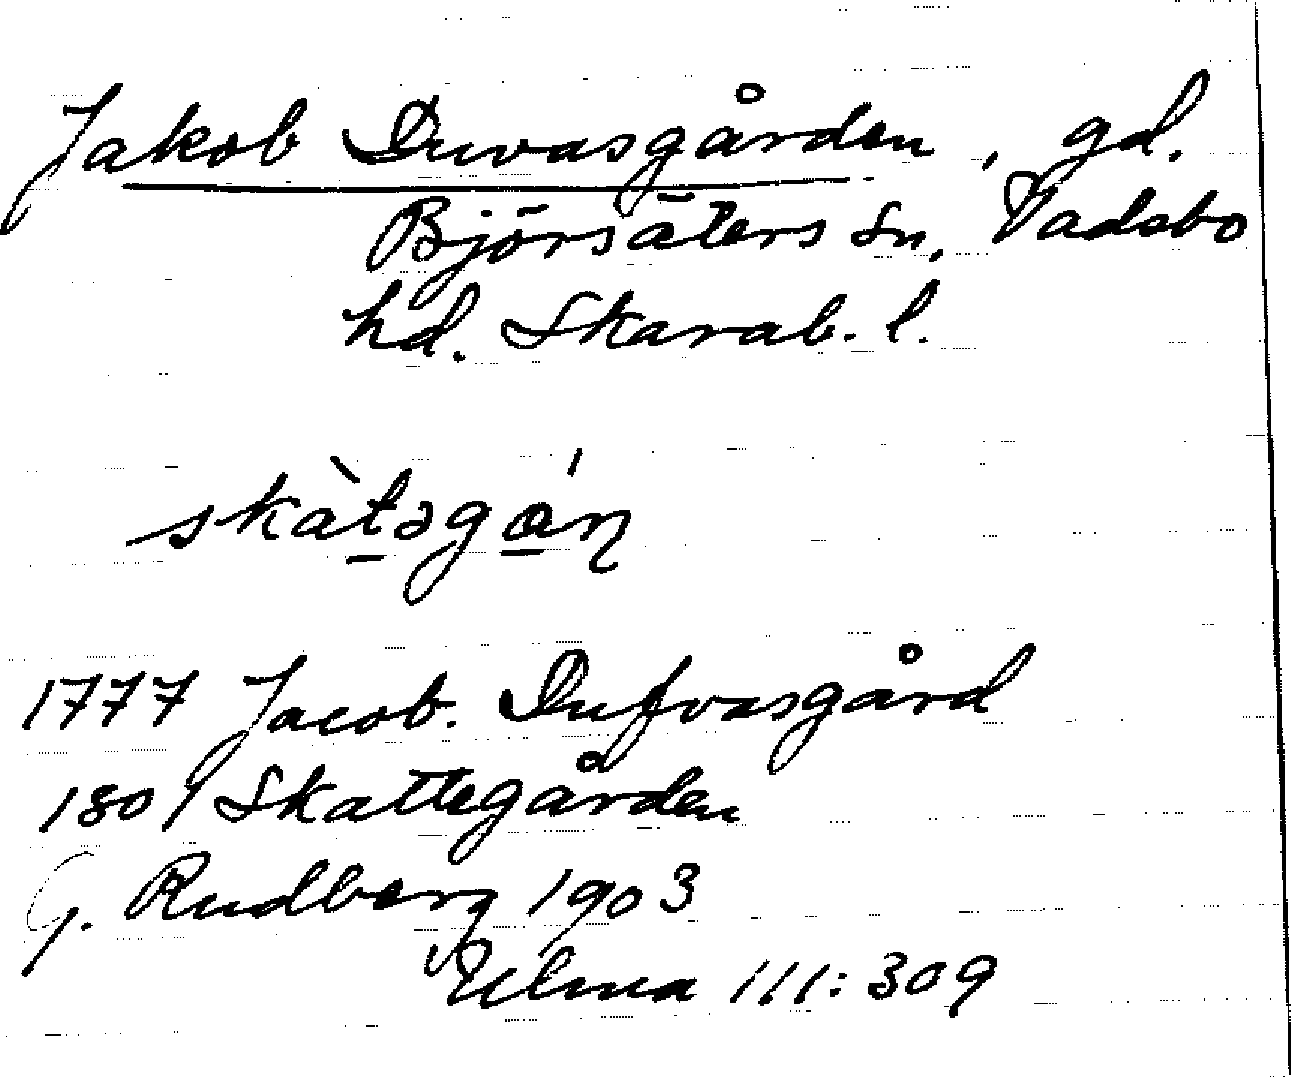 Jakob Duvasgården, gd.
Björsäters sn, Vadsbo
hd. Skarab. l.
skàtəgán
1777 Jacob. Dufvasgård
1801 Skattegården
G. Rudberg 1903
Ulma 111:309